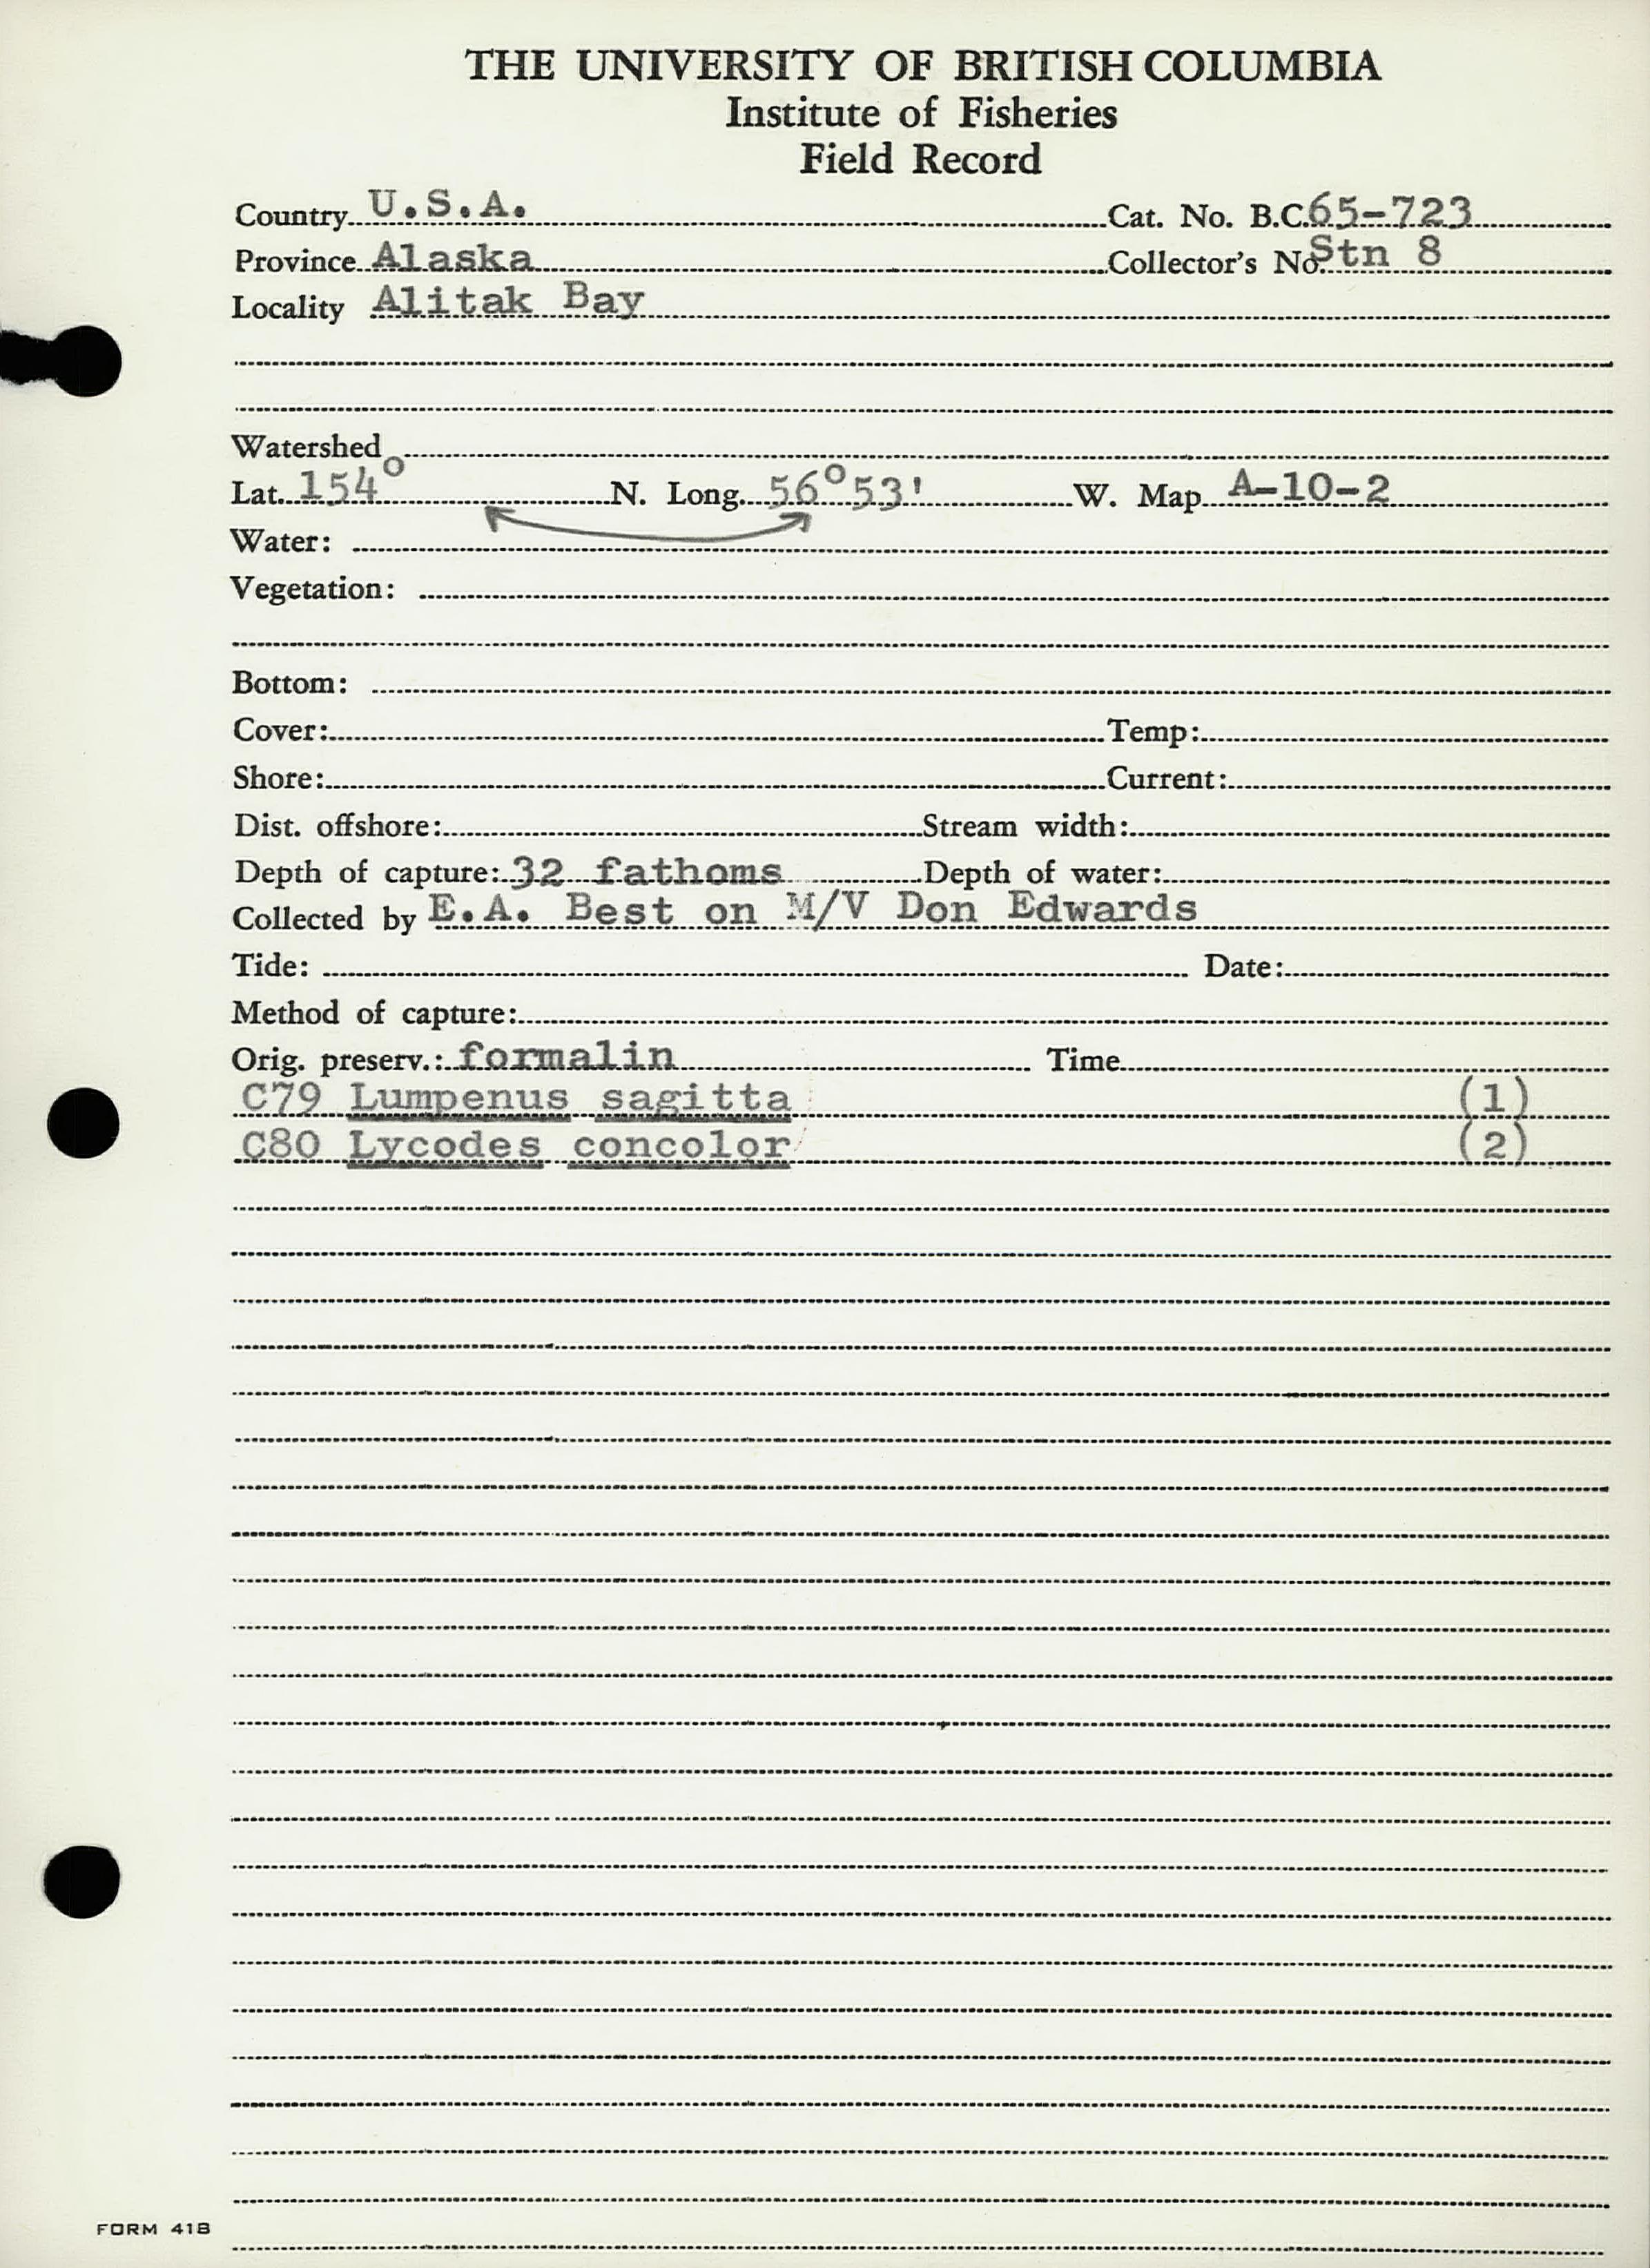 THE UNIVERSITY OF BRITISH COLUMBIA
Institute of Fisheries
Field Record
Country U.S.A. Cat. No. B.C. 65-723
Province Alaska Collector's No. Stn 8
Locality Alitak Bay
Watershed
Lat. 154° N. Long. 56°53' W. Map A-10-2
Water:
Vegetation:
Bottom:
Cover: Temp:
Shore: Current:
Dist. offshore: Stream width:
Depth of capture: 32 fathoms Depth of water:
Collected by E.A. Best on M/V Don Edwards
Tide: Date:
Method of capture:
Orig. preserv.: formalin Time
C79 Lumpenus sagitta (1)
C80 Lycodes concolor (2)
FORM 41B